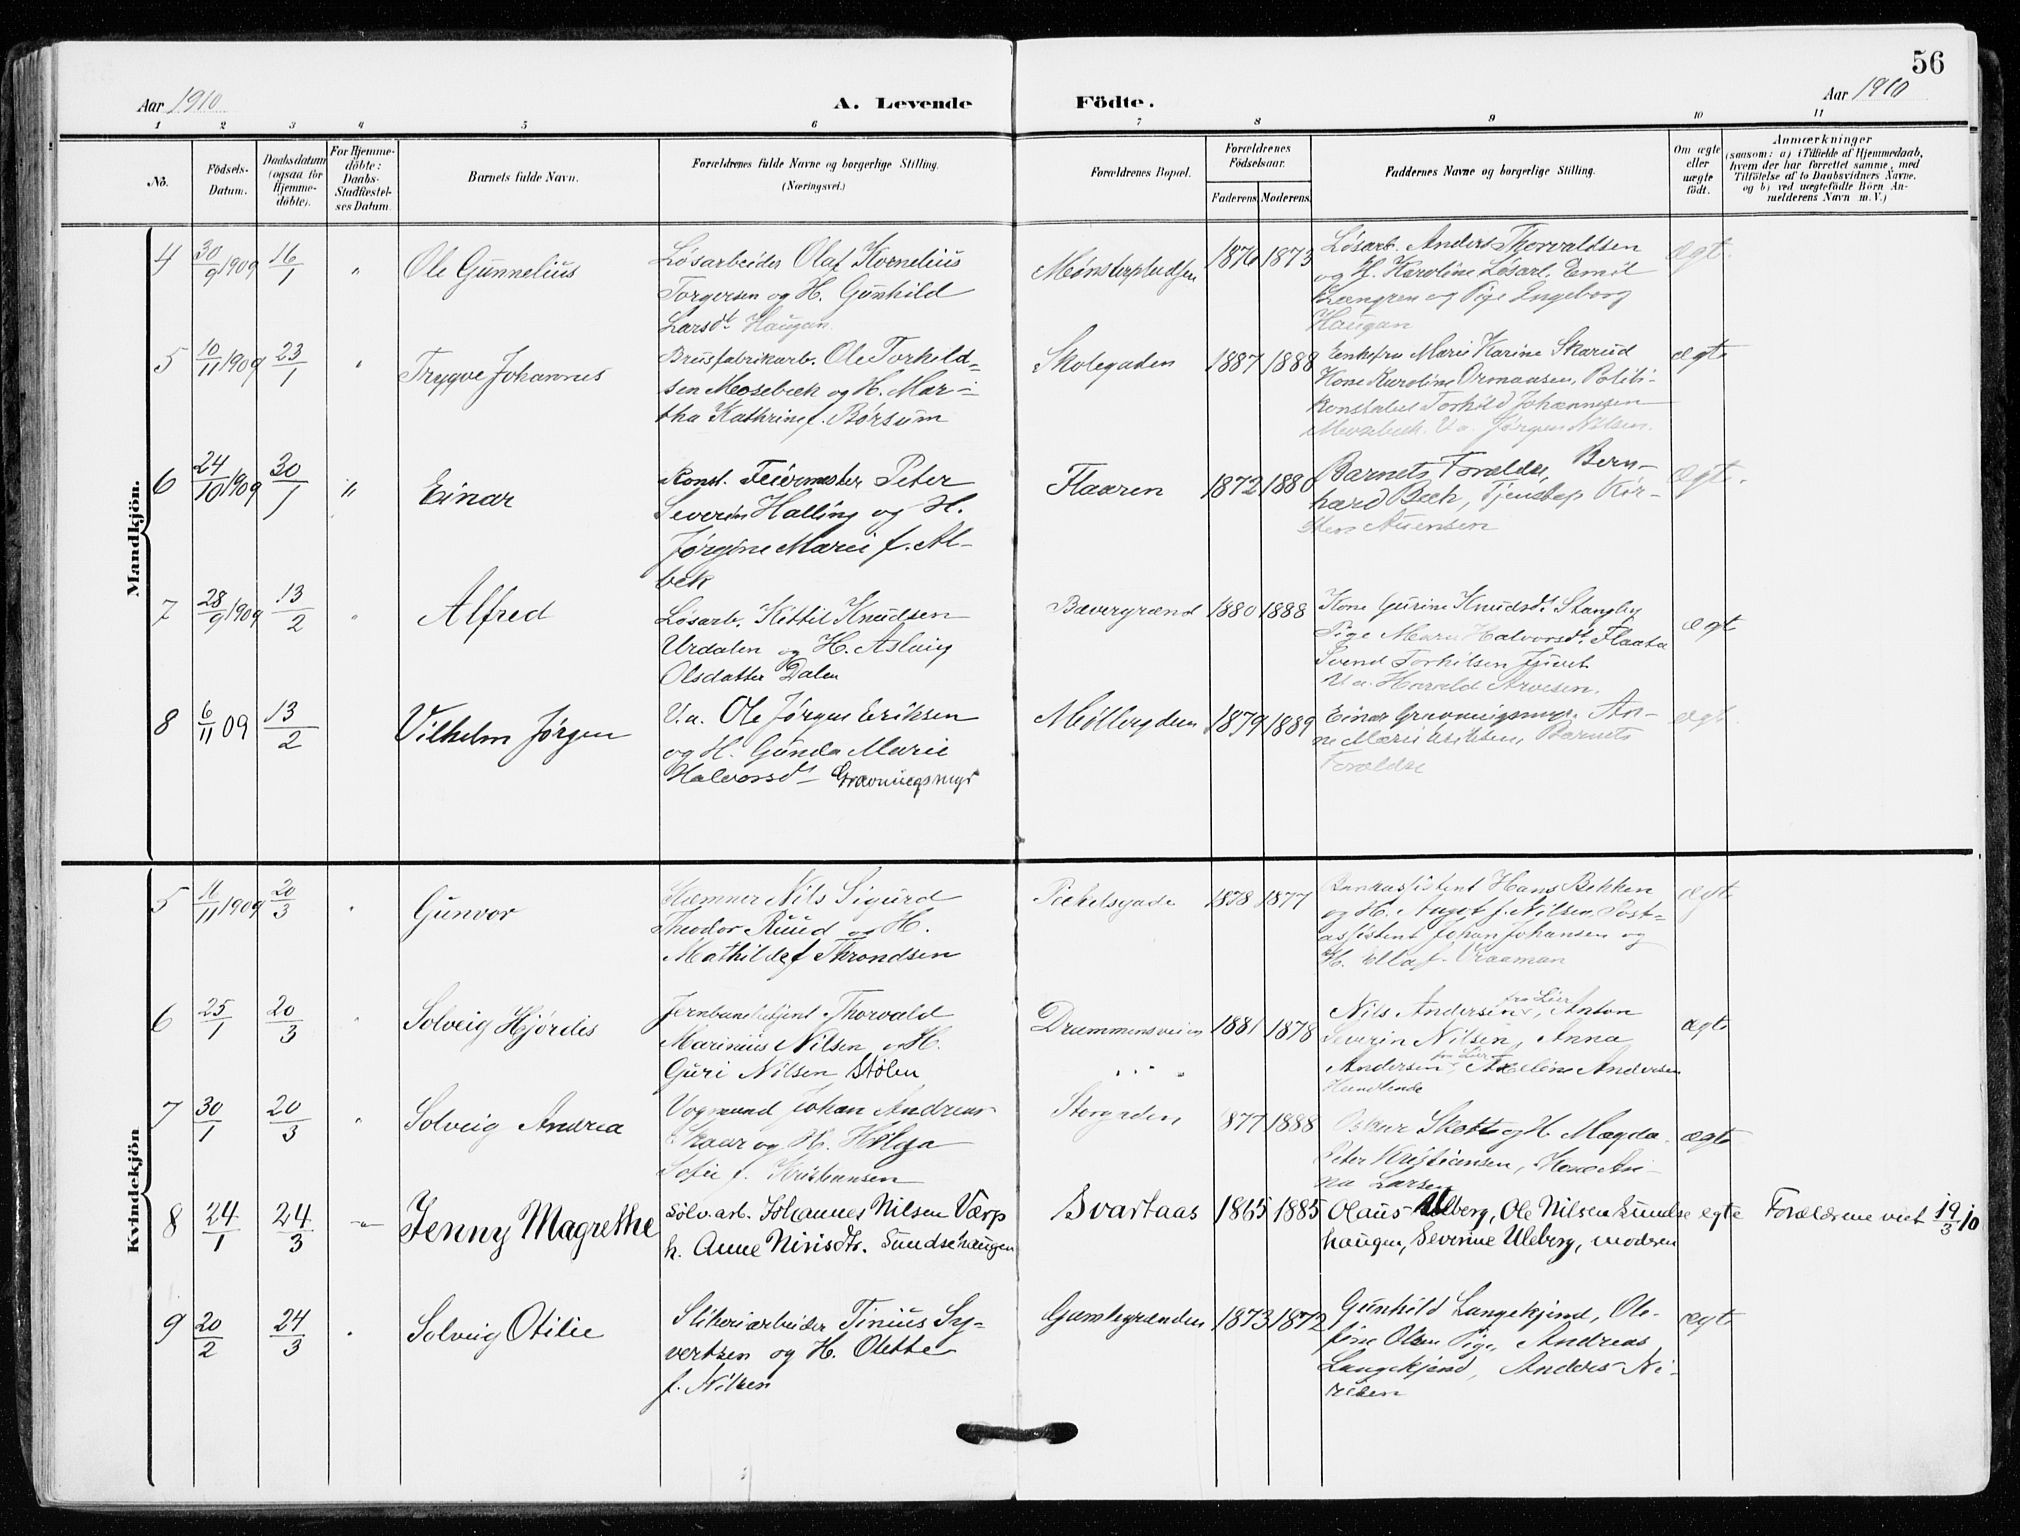 56
Aar 1910
A. Levende Födte.
Aar 1910
1 2 3 4 5 6 7 8 9 10 11
No.
Födsels-
Datum.
Daabsdatum
(ogsaa for
Hjemme-
döbte).
For Hjemme-
döbte:
Daabs-
Stadfæstel-
ses Datum.
Barnets fulde Navn.
Forældrenes fulde Navne og borgerlige Stilling.
(Næringsvei.)
Forældrenes Bopæl.
Forældrenes
Födselsaar.
Faderens
Moderens
Faddernes Navne og borgerlige Stilling.
Om ægte
eller
uægte
födt.
Anmærkninger
(saasom: a) i Tilfælde af Hjemmedaab,
hvem der har forrettet samme, med
Tilföielse af to Daabsvidners Navne,
og b) ved uægtefödte Börn An-
melderens Navn m. V.)
Mandkjön.
4 30/9 1909 16/1 " Ole Gunnelius
Løsarbeider Olaf Kornelius
Torgersen og H. Gunhild
Larsdt. Haugan.
Mønsterpladsen 1876 1873
Løsarb. Anders Thorvaldsen
og H. Karoline Løsarb. Emil
Længren og Pige Ingeborg
Haugan
ægt.
5 10/11 1909 23/1 " Trygve Johannes
Brusfabrikarb. Ole Torkild-
sen Mosebæk og H. Mar-
tha Kathrine f. Børsum
Skolegaden 1887 1888
Enkefru Marie Karine Skarud
Kone Karoline Ormaasen, Politi-
konstabel Torkild Johannesen
Mosebæk. U.a. Jørgen Nilsen.
ægt
6 24/10 1909 30/1 " Einar
Konst. Feiermester Peter
Severin Halling og H.
Jørgine Marie f. Al-
bek
Flaaren 1872 1880
Barnets Forældre, Bern-
hard Bech, Tjenstep. Kir-
sten
ægt.
7 28/9 1909 13/2 " Alfred
Løsarb. Kittil Knudsen
Urdalen og H. Aslaug
Olsdatter Dalen
Bævergrænd 1880 1888
Kone Gurine Knudsdt. Stangby
Pige Maria Halvorsdt. Flaata
Svend Torkilsen Juvet
U.a. Harald Arvesen.
ægt
8 6/11 09 13/2 Vilhelm Jørgen
U.a. Ole Jørgen Eriksen
og H. Gunda Marie
Halvorsdt. Gravningsmyr
Møllergden 1879 1889
Einar Gravningsmyr. An-
ne Marie Eriksen, Barnets
Forældre
ægt
Kvindekjön
5 11/11 1909 20/3 " Gunvor
Kæmner Nils Sigurd
Theodor Ruud og H.
Mathilde f. Throndsen
Pickelsgade 1878 1877
Bankassistent Hans Bekken
og H. Aagot f. Nilsen, Post-
assistent Johan Johansen og
H. Ella f. Vraaman
ægt
6 25/1 20/3 " Solveig Hjørdis
Jernbanebetjent Thorvald
Marinius Nilsen og H.
Guri Nilsen Stølen
Drammensveien 1881 1878
Nils Andersen fra Lier, Anton
Severin Nilsen, Anna
Andersen fra Lier, Axeline Andersen
ægt
7 30/1 20/3 " Solveig Andrea
Vognmand Johan Andreas
Skaar og H. Helga
Sofie f. Kristiansen
Storgaden 1877 1888
Oskar Skatt og H. Magda
Peter Kristiansen, Kone An-
na Larsen
ægte
8 24/1 24/3 -"- Jenny Magrethe
Sølvarb. Johannes Nilsen Værp
h. Anne Nirisdtr. Sundsehaugen
Svartaas 1865 1885
Olaus Uleberg, Ole Nilsen Sundse
haugen, Severine Uleberg, moderen
ægte Forældrene viet 19/3 10
9 20/2 24/3 " Solveig Otilie
Sliberiarbeider Tinius Sy-
vertsen og H. Olette
f. Nilsen
Gamlegrænden 1873 1872
Gunhild Langekjend, Ole-
fine Olsen Pige, Andreas
Langekjend, Anders Ni-
risen
ægt